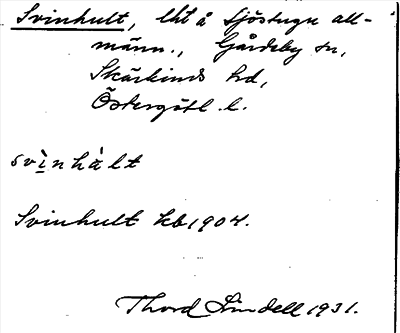 Svinhult, lht å Sjöstugu all-
männ., Gårdeby sn,
Skärkinds hd,
Östergötl. l.
svìnhàlt
Svinhult kb 1904.
Thord Lindell 1931.